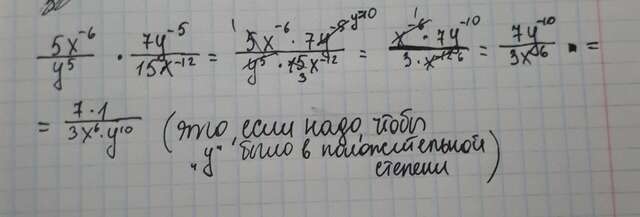 5x⁻⁶/y⁵ · 7y⁻⁵/15x⁻¹² = 5x⁻⁶ · 7y⁻⁵ y⁻¹⁰/y⁵ · 15x⁻¹² = x⁻⁶ · 7y⁻¹⁰/3 · x⁻¹² ⁻⁶ = 7y⁻¹⁰/3x⁻⁶ · =
= 7 · 1/3x⁶ · y¹⁰ (это, если надо, чтобы
"y" было в положительной
степени)